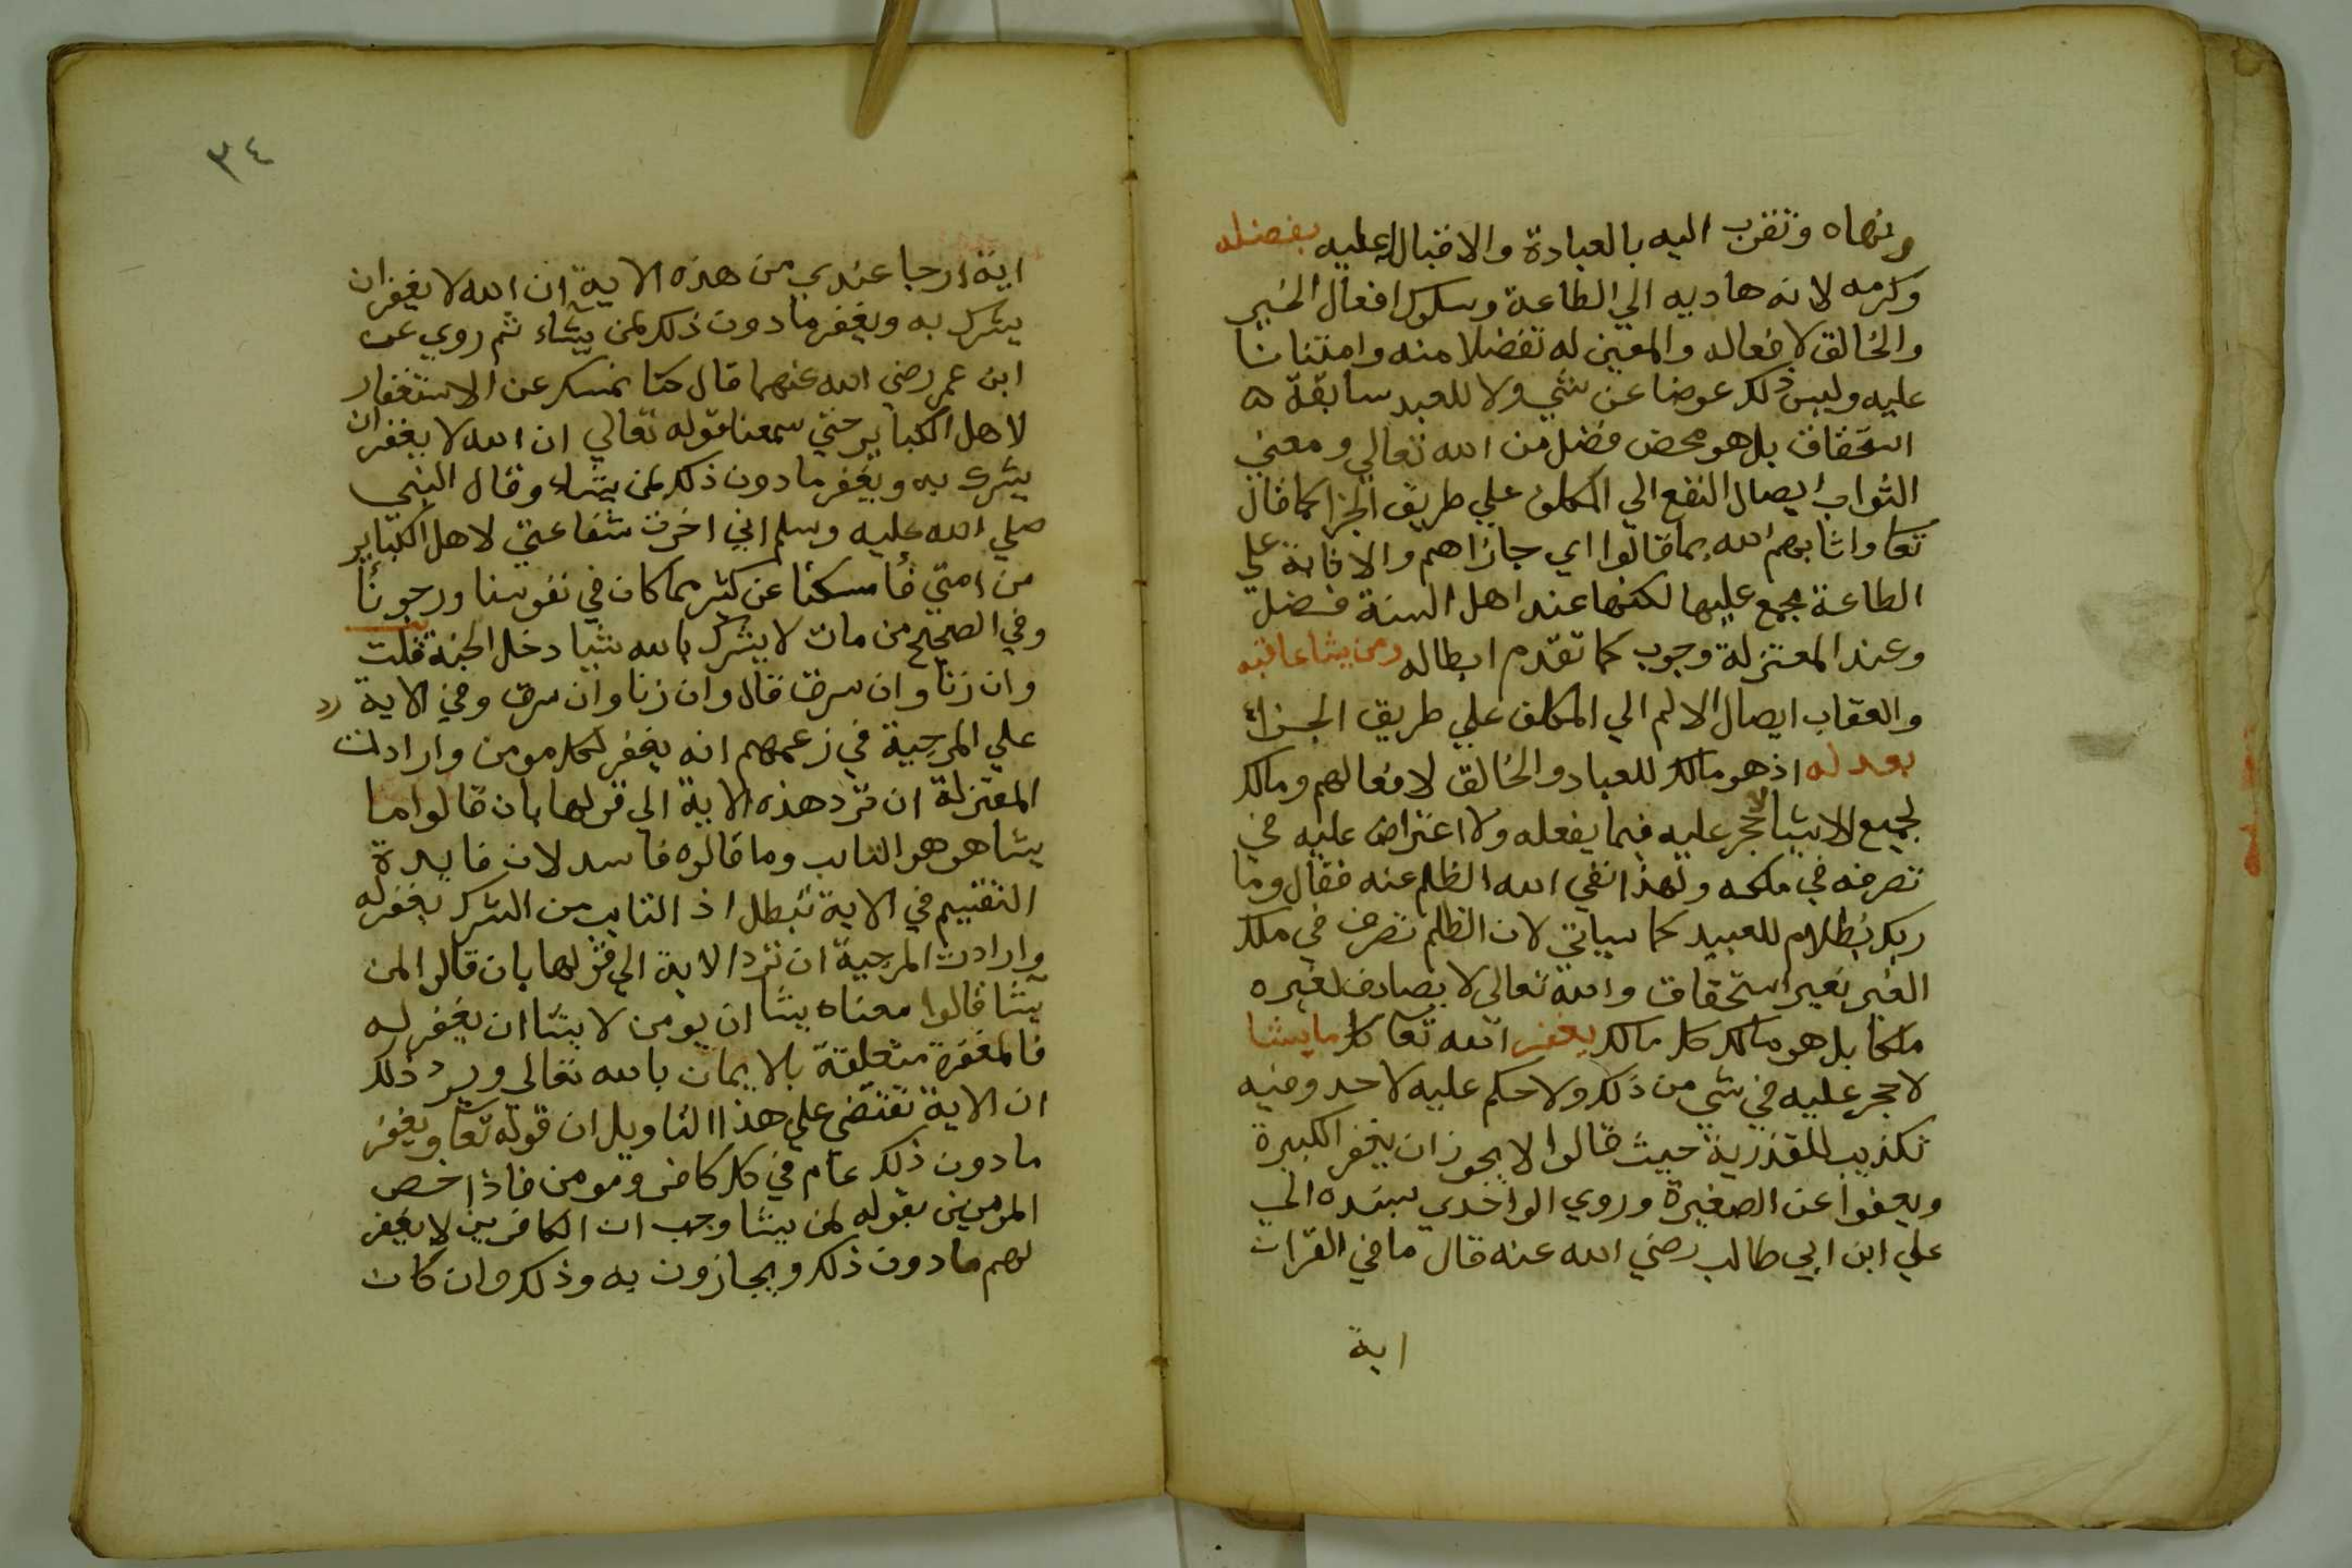 ونهاه وتقرب اليه بالعبادة والاقبال عليه بفضله
وكرمه لانه هاديه الي الطاعة وسلوك افعال الخير
والخالق لافعاله والمعين له تفضلا منه وامتنانا
عليه وليس ذلك عوضا عن شي ولا للعبد سابقة ه
استحقاق بل هو محض فضل من الله تعالي ومعني
الثواب ايصال النفع الي المكلف علي طريق الجزا كما قال
تعا واثابهم الله بما قالوا اي جازاهم والاثابة علي
الطاعة مجمع عليها لكنها عند اهل السنة فضل
وعند المعتزلة وجوب كما تقدم ابطاله ومن يشا عاقبه
والعقاب ايصال الالم الي المكلف علي طريق الجزاء
بعدله اذ هو مالك للعباد والخالق لافعالهم ومالك
لجميع الاشيا لا حجر عليه فيما يفعله ولا اعتراض عليه في
تصرفه في ملكه ولهذا نفي الله الظلم عنه فقال وما
ربك بظلام للعبيد كما سياتي لان الظلم تصرف في ملك
الغير بغير استحقاق والله تعالي لا يصادف لغيره
ملكا بل هو مالك كل مالك يغفر الله تعا كل ما يشا
لا حجر عليه في شي من ذلك ولا حكم عليه لاحد وفيه
تكذيب للقدرية حيث قالوا لا يجوز ان يغفر الكبيرة
ويعفوا عن الصغيرة وروي الواحدي بسنده الي
علي ابن ابي طالب رضي الله عنه قال ما في القران
اية
٣٤
اية ارجا عندي من هذه الاية ان الله لا يغفر ان
يشرك به ويغفر ما دون ذلك لمن يشاء ثم روي عن
ابن عمر رضي الله عنهما قال كنا نمسك عن الاستغفار
لاهل الكباير حتي سمعنا قوله تعالي ان الله لا يغفر ان
يشرك به ويغفر ما دون ذلك لمن يشاء وقال النبي
صلي الله عليه وسلم اني اخرت شفاعتي لاهل الكباير
من امتي فأمسكنا عن كثير مما كان في نفوسنا ورجونا
وفي الصحيح من مات لا يشرك بالله شيا دخل الجنة قلت
وان زنا وان سرق قال وان زنا وان سرق وفي الاية رد
علي المرجية في زعمهم انه يغفر لكل مومن وارادت
المعتزلة ان ترد هذه الاية الي قولها بان قالوا ما
يشا هو هو التايب وما قالوه فاسد لان فايدة
التقسيم في الاية تبطل اذ التايب من الشرك يغفر له
وارادت المرجية ان ترد الاية الي قولها بان قالوا لمن
يشا قالوا معناه يشا ان يومن لا يشا ان يغفر له
فالمغفرة متعلقة بالايمان بالله تعالي ويرد ذلك
ان الاية تقتضي علي هذا التاويل ان قوله تعا ويغفر
ما دون ذلك عام في كل كافر ومومن فاذا خص
المومنين بقوله لمن يشا وجب ان الكافرين لا يغفر
لهم ما دون ذلك ويجازون به وذلك وان كان